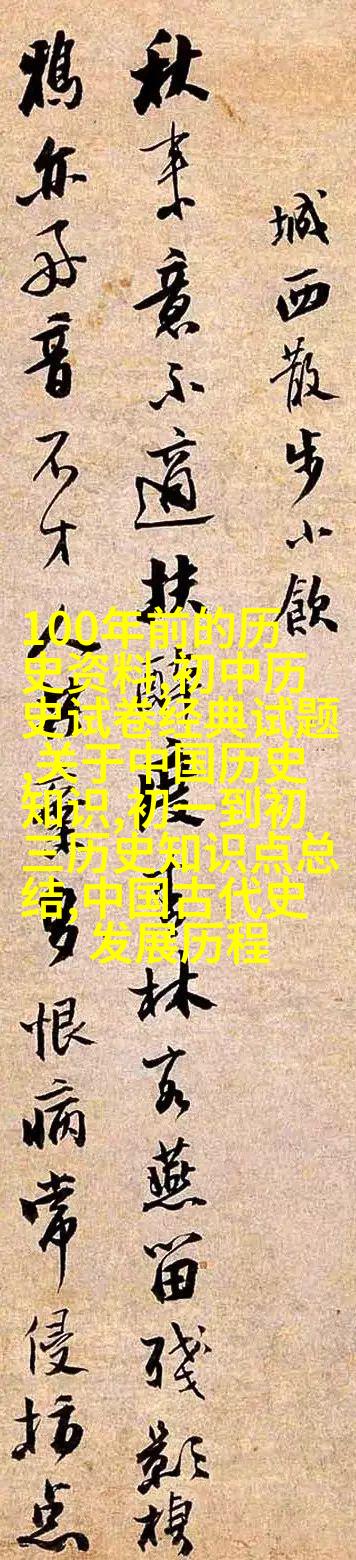 城西散步小飲
秋来意不適扶醉度林客燕留残影
鴉亦好音不才人棄多恨病常侵点
100年前的历
史资料,初中历
史试卷经典试题
,关于中国历史
知识,初一到初
三历史知识点总
结,中国古代史
发展历程